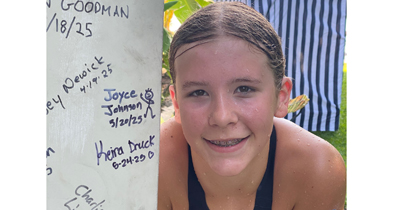 GOODMAN
/18/25
ey Newick
4/19/25
Joyce
Johnson
3/20/25
Keira Druck
8-24-25
Charli